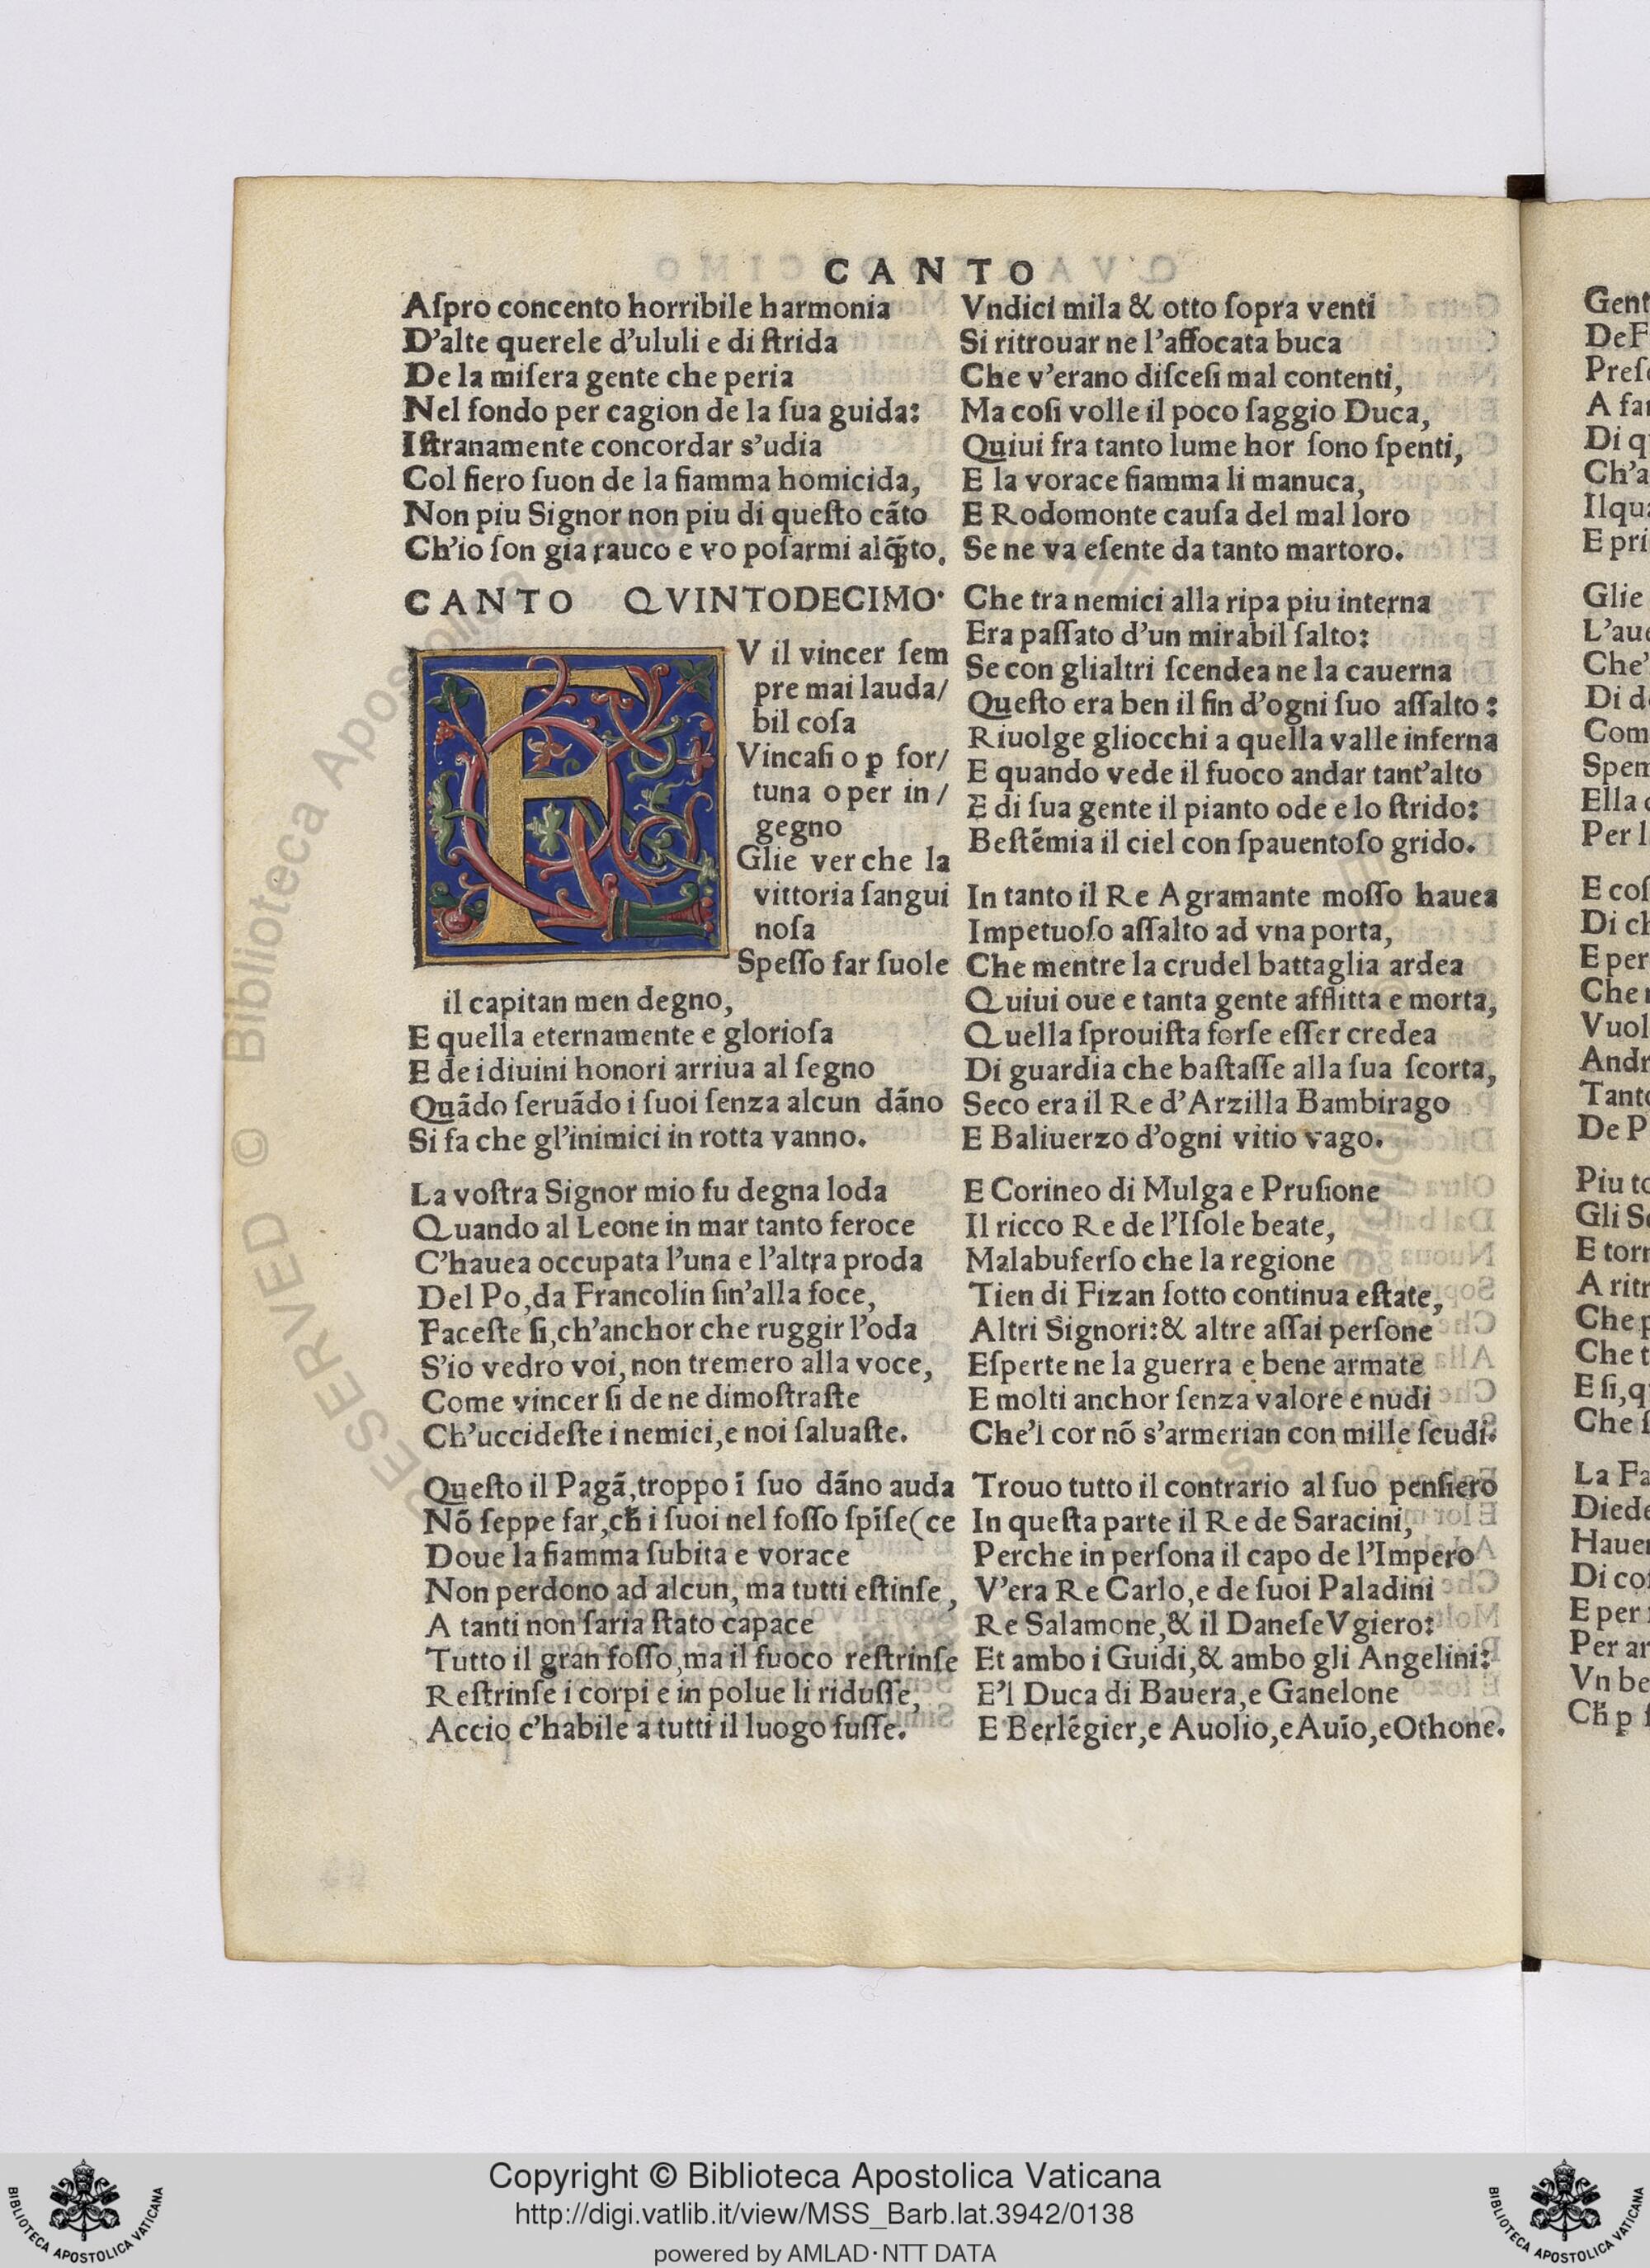 CANTO
Aſpro concento horribile harmonia
D'alte querele d'ululi e di ſtrida
De la miſera gente che peria
Nel fondo per cagion de la ſua guida:
Iſtranamente concordar s'udia
Col fiero ſuon de la fiamma homicida,
Non piu Signor non piu di queſto cãto
Ch'io ſon gia rauco e vo poſarmi alq̃to.
CANTO QVINTODECIMO.
F
V il vincer ſem
pre mai lauda/
bil coſa
Vincaſi o ꝑ for/
tuna o per in/
gegno
Glie ver che la
vittoria ſangui
noſa
Speſſo far ſuole
il capitan men degno,
E quella eternamente e glorioſa
E de i diuini honori arriua al ſegno
Quãdo ſeruãdo i ſuoi ſenza alcun dãno
Si fa che gl'inimici in rotta vanno.
La voſtra Signor mio fu degna loda
Quando al Leone in mar tanto feroce
C'hauea occupata l'una e l'altra proda
Del Po, da Francolin ſin'alla foce,
Faceſte ſi, ch'anchor che ruggir l'oda
S'io vedro voi, non tremero alla voce,
Come vincer ſi de ne dimoſtraſte
Ch'uccideſte i nemici, e noi ſaluaſte.
Queſto il Pagã, troppo ĩ ſuo dãno auda
Nõ ſeppe far, cħ i ſuoi nel foſſo ſpĩſe (ce
Doue la fiamma ſubita e vorace
Non perdono ad alcun, ma tutti eſtinſe,
A tanti non ſaria ſtato capace
Tutto il gran foſſo, ma il fuoco reſtrinſe
Reſtrinſe i corpi e in polue li riduſſe,
Accio c'habile a tutti il luogo fuſſe.
Vndici mila & otto ſopra venti
Si ritrouar ne l'affocata buca
Che v'erano diſceſi mal contenti,
Ma coſi volle il poco ſaggio Duca,
Quiui fra tanto lume hor ſono ſpenti,
E la vorace fiamma li manuca,
E Rodomonte cauſa del mal loro
Se ne va eſente da tanto martoro.
Che tra nemici alla ripa piu interna
Era paſſato d'un mirabil ſalto:
Se con glialtri ſcendea ne la cauerna
Queſto era ben il fin d'ogni ſuo aſſalto:
Riuolge gliocchi a quella valle inferna
E quando vede il fuoco andar tant'alto
E di ſua gente il pianto ode e lo ſtrido:
Beſtẽmia il ciel con ſpauentoſo grido.
In tanto il Re Agramante moſſo hauea
Impetuoſo aſſalto ad vna porta,
Che mentre la crudel battaglia ardea
Quiui oue e tanta gente afflitta e morta,
Quella ſprouiſta forſe eſſer credea
Di guardia che baſtaſſe alla ſua ſcorta,
Seco era il Re d'Arzilla Bambirago
E Baliuerzo d'ogni vitio vago.
E Corineo di Mulga e Pruſione
Il ricco Re de l'Iſole beate,
Malabuferſo che la regione
Tien di Fizan ſotto continua eſtate,
Altri Signori: & altre aſſai perſone
Eſperte ne la guerra e bene armate
E molti anchor ſenza valore e nudi
Che'l cor nõ s'armerian con mille ſcudi.
Trouo tutto il contrario al ſuo penſiero
In queſta parte il Re de Saracini,
Perche in perſona il capo de l'Impero
V'era Re Carlo, e de ſuoi Paladini
Re Salamone, & il Daneſe Vgiero:
Et ambo i Guidi, & ambo gli Angelini:
E'l Duca di Bauera, e Ganelone
E Berlẽgier, e Auolio, e Auĩo, e Othone.
Copyright © Biblioteca Apostolica Vaticana
http://digi.vatlib.it/view/MSS_Barb.lat.3942/0138
powered by AMLAD·NTT DATA
BIBLIOTECA APOSTOLICA VATICANA
BIBLIOTECA APOSTOLICA VATICANA